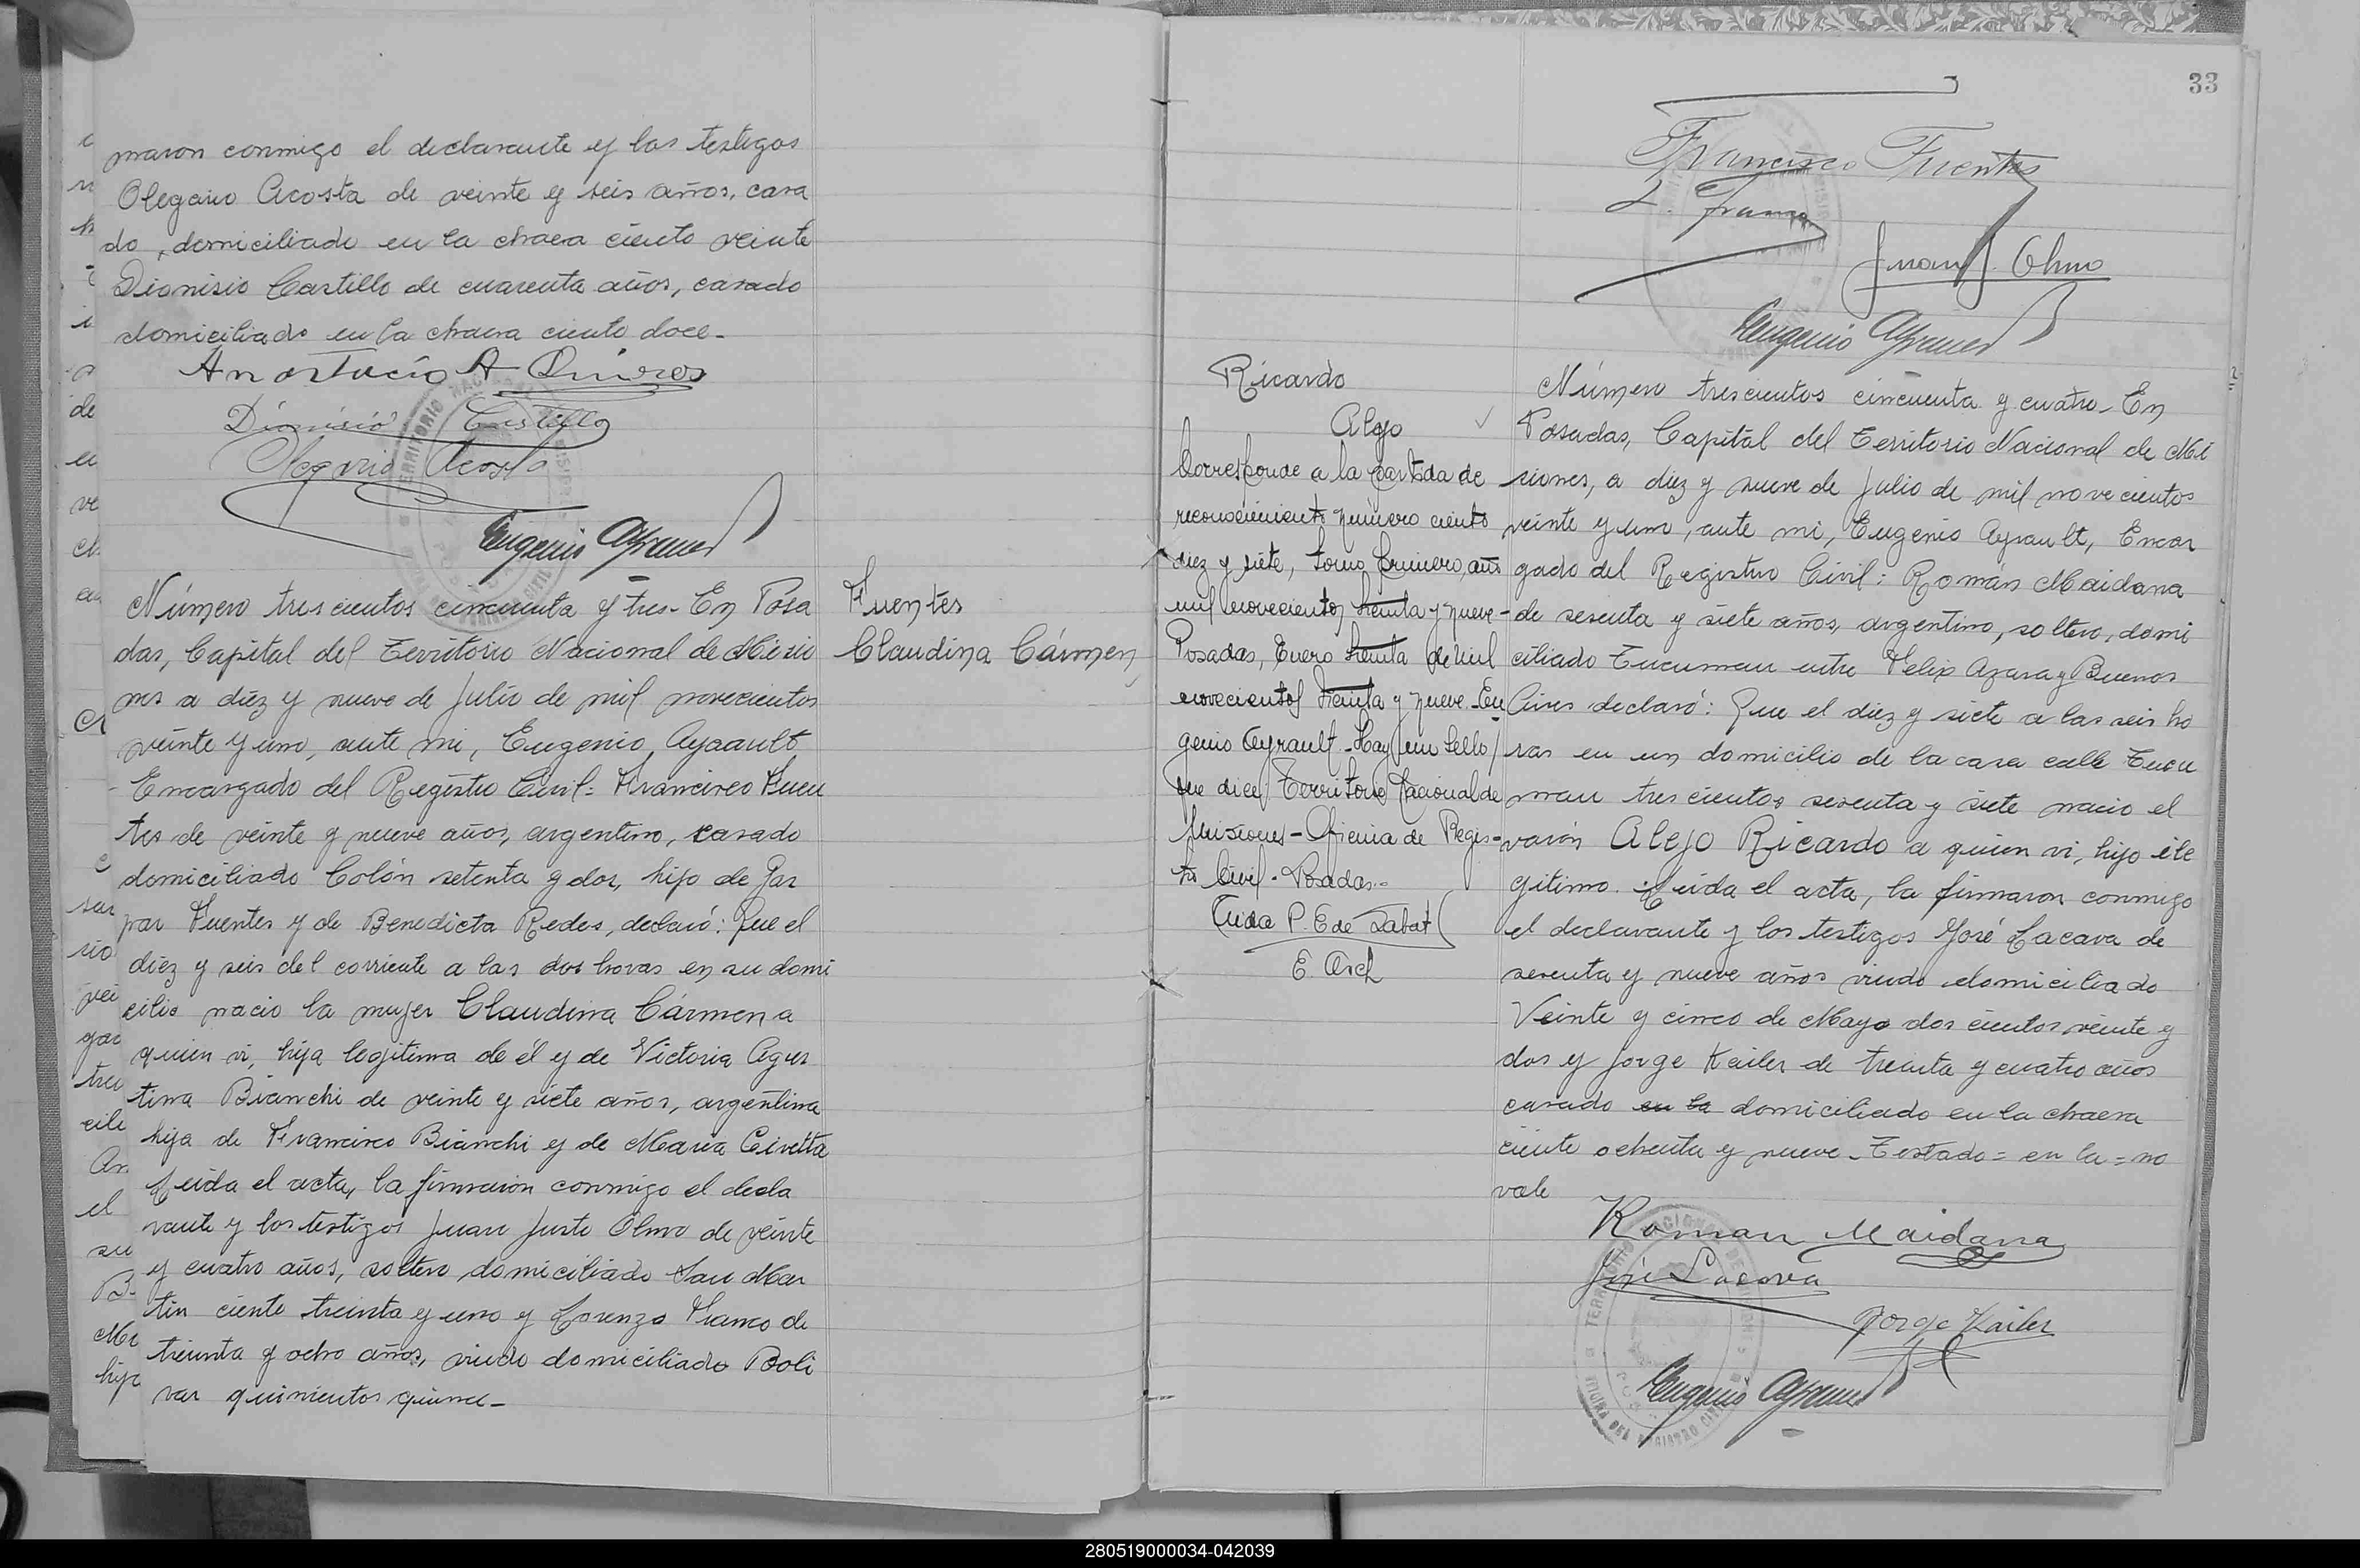 maron conmigo el declarante y los testigos
Olegario Acosta de veinte y seis años, casa
do, domiciliado en la chacra ciento veinte
Dionisio Castillo de cuarenta años, casado
domiciliado en la chacra ciento doce-
Anastacio A
Dionisio Castillo
Olegario Acosta
Eugenio Ayrault
Número trescientos cincuenta y tres- En Posa
das, Capital del Territorio Nacional de Misio
nes a diez y nueve de Julio de mil novecientos
veinte y uno, ante mi, Eugenio Ayrault
Encargado del Registro Civil: Francisco Fuen
tes de veinte y nueve años, argentino, casado
domiciliado Colón setenta y dos, hijo de Gas
par Fuentes y de Benedicta Redes, declaró: Que el
diez y seis del corriente a las dos horas en su domi
cilio nació la mujer Claudina Cármen a
quien vi, hija legitima de él y de Victoria Agus
tina Bianchi de veinte y siete años, argentina
hija de Francisco Bianchi y de María Civetta
Leida el acta, la firmaron conmigo el decla
rante y los testigos Juan Justo Olmo de veinte
y cuatro años, soltero domiciliado San Mar
tin ciento treinta y uno y Lorenzo Franco de
treinta y ocho años, viudo domiciliado Boli
var quinientos quince-
Fuentes
Claudina Cármen
33
Francisco Fuentes
L. Franco
Juan J. Olmo
Eugenio Ayrault
Ricardo
Alejo
Corresponde a la partida de
reconocimiento número ciento
diez y siete, tomo primero, año
mil novecientos treinta y nueve-
Posadas, Enero treinta de mil
novecientos treinta y nueve- Eu
genio Ayrault- Hay un sello
que dice Territorio Nacional de
Misiones- Oficina de Regis-
tro Civil- Posadas-
P. E de Labat
E. Arch
Número trescientos cincuenta y cuatro- En
Posadas, Capital del Territorio Nacional de Mi
siones, a diez y nueve de Julio de mil novecientos
veinte y uno, ante mi, Eugenio Ayrault, Encar
gado del Registro Civil: Román Maidana
de sesenta y siete años, argentino, soltero, domi
ciliado Tucuman entre Felix Azara y Buenos
Aires declaró: Que el diez y siete a las seis ho
ras en un domicilio de la casa calle Tucu
man trescientos sesenta y siete nacio el
varón Alejo Ricardo a quien vi, hijo ile
gitimo. Leida el acta, la firmaron conmigo
el declarante y los testigos José Lacava de
sesenta y nueve años viudo domiciliado
Veinte y cinco de Mayo dos cientos veinte y
dos y Jorge Kailer de treinta y cuatro años
casado en la domiciliado en la chacra
ciento ochenta y nueve- Testado= en la = no
vale
Roman Maidana
José Lacava
Jorge Kailer
Eugenio Ayrault
280519000034-042039